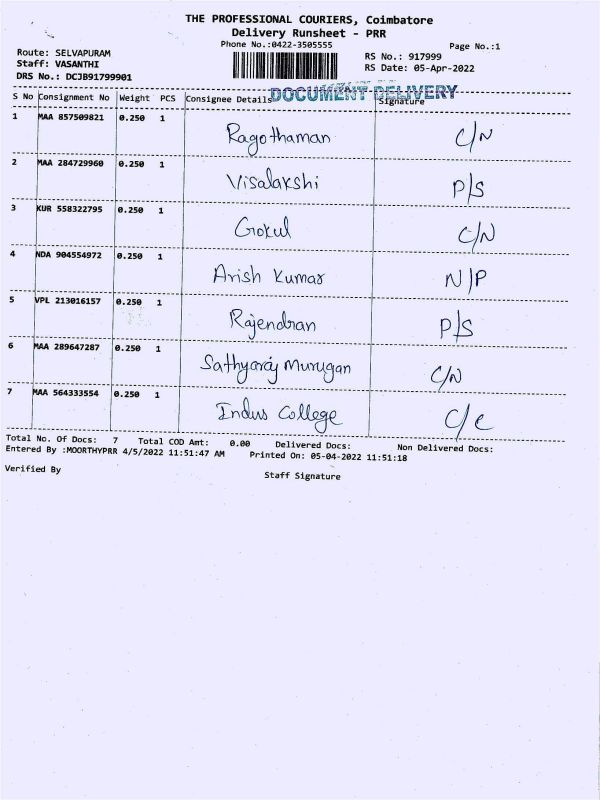 THE PROFESSIONAL COURIERS, Coimbatore
Delivery Runsheet - PRR
Phone No.:0422-3505555 Page No.:1
Route: SELVAPURAM RS No.: 917999
Staff: VASANTHI RS Date: 05-Apr-2022
DRS No.: DCJB91799901
DOCUMENT DELIVERY
S No Consignment No Weight PCS Consignee Details Signature
1 MAA 857509821 0.250 1 Ragothaman C/N
2 MAA 284729960 0.250 1 Visalakshi P/S
3 KUR 558322795 0.250 1 Gokul C/N
4 NDA 904554972 0.250 1 Arish Kumar N/P
5 VPL 213016157 0.250 1 Rajendran P/S
6 MAA 289647287 0.250 1 Sathyaraj Murugan C/N
7 MAA 564333554 0.250 1 Indus College C/C
Total No. Of Docs: 7 Total COD Amt: 0.00 Delivered Docs: Non Delivered Docs:
Entered By :MOORTHYPRR 4/5/2022 11:51:47 AM Printed On: 05-04-2022 11:51:18
Verified By Staff Signature